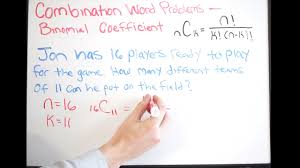 Combination Word Problems –
Binomial Coefficient
nCk = n! / k!(n-k)!
Jon has 16 players ready to play
for the game. How many different teams
of 11 can he put on the field?
n=16
k=11
16C11 =